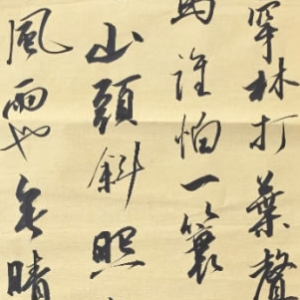 穿林打葉聲
馬誰怕一簑
山頭斜照
風雨也無晴